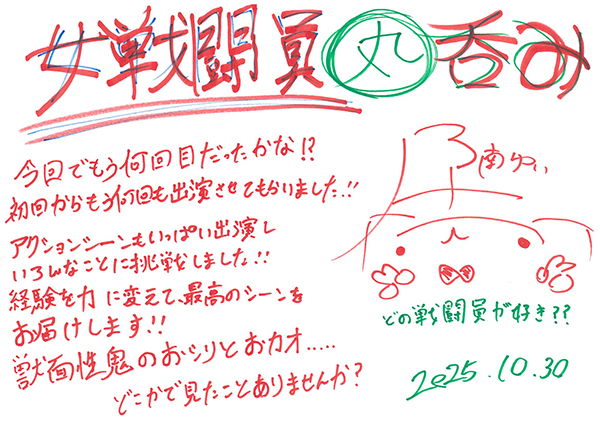 女戦闘員丸呑み
今回でもう何回目だったかな!?
初回からもう何回も出演させてもらいました!!
アクションシーンもいっぱい出演し
いろんなことに挑戦しました!!
経験を力に変えて、最高のシーンを
お届けします!!
獣面性鬼のおシリとおカオ.....
どこかで見たことありませんか?
南ゆい
どの戦闘員が好き??
2025.10.30